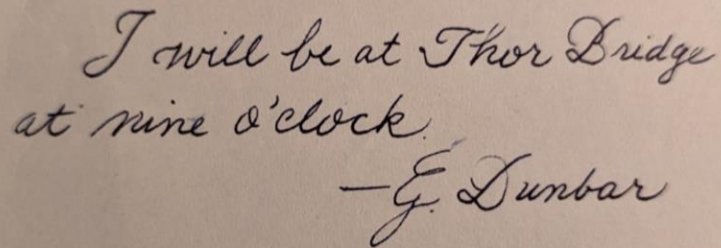 I will be at Thor Bridge
at nine o'clock.
—G. Dunbar